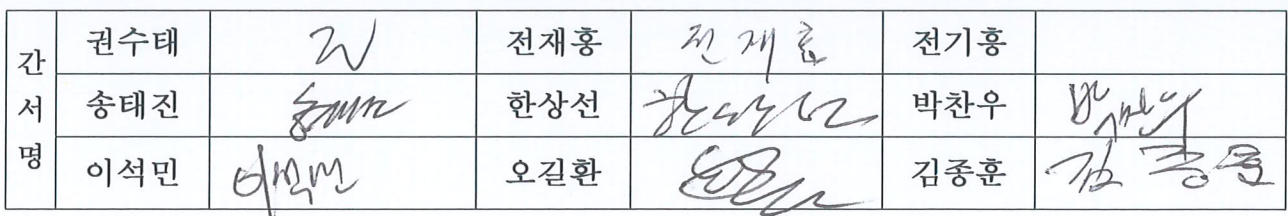 간 서 명
권수태 전재홍 전재홍 전기홍
송태진 한상선 박찬우
이석민 이석민 오길환 김종훈 김종훈